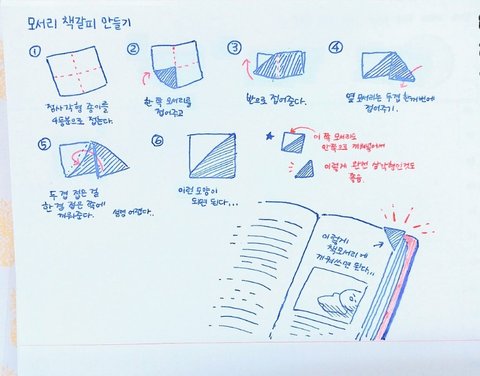 모서리 책갈피 만들기
①
정사각형 종이를
4등분으로 접는다.
②
한 쪽 모서리를
접어주고
③
반으로 접어준다.
④
옆 모서리는 두겹 한꺼번에
접어주기.
⑤
두 겹 접은 걸
한 겹 접은 쪽에
끼워준다.
설명 어렵다.
⑥
이런 모양이
되면 된다...
★
이 쪽 모서리도
안쪽으로 끼워넣어서
이렇게 완전 삼각형인것도
좋음.
이렇게
책모서리에
끼워쓰면 된다...